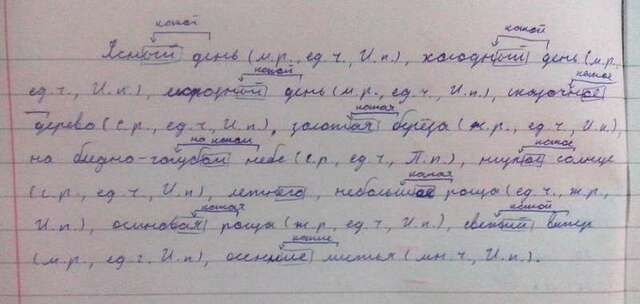 какой какой
Ясный день (м.р., ед.ч., И.п.), холодный день (м.р.,
какой какое
ед.ч., И.п.), морозный день (м.р., ед.ч., И.п.), сказочное
какая
дерево (с.р., ед.ч., И.п.), золотая берёза (ж.р., ед.ч., И.п.),
на каком какое
на бледно-голубом небе (с.р., ед.ч., П.п.), солнце
какая
(с.р., ед.ч., И.п.), летнего, небольшая роща (ед.ч., ж.р.,
какая какой
И.п.), осиновая роща (ж.р., ед.ч., И.п.), свежий ветер
какие
(м.р., ед.ч., И.п.), осенние листья (мн.ч., И.п.).